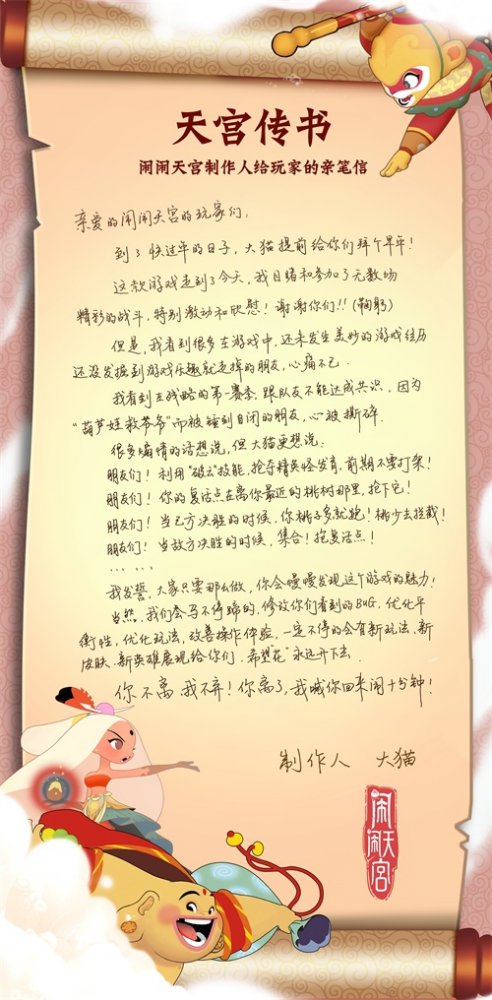 天宫传书
闹闹天宫制作人给玩家的亲笔信
亲爱的闹闹天宫的玩家们,
到了快过年的日子,大猫提前给你们拜个早年!
这款游戏走到了今天,我目睹和参加了无数场
精彩的战斗,特别激动和欣慰!谢谢你们!!(鞠躬)
但是,我看到很多在游戏中,还未发生美妙的游戏经历
还没发掘到游戏乐趣就走掉的朋友,心痛不已.
我看到在战略的第一赛季,跟队友不能达成共识,因为
“葫芦娃救爷爷”而被锤到自闭的朋友,心被撕碎.
很多煽情的话想说,但大猫更想说:
朋友们!利用“破云”技能,抢夺精英怪发育,前期不要打架!
朋友们!你的复活点在离你最近的桃树那里,抢下它!
朋友们!当己方决胜的时候,你桃子多就跑!桃少去拦截!
朋友们!当敌方决胜的时候,集合!抱复活点!
... ...
我发誓,大家只要那么做,你会慢慢发现这个游戏的魅力!
当然,我们会马不停蹄的,修改你们看到的BUG,优化平
衡性,优化玩法,改善操作体验,一定不停的会有新玩法、新
皮肤、新英雄展现给你们,希望花“永远开下去.
你不离 我不弃!你离了,我喊你回来闹十分钟!
制作人 大猫
闹闹天宫